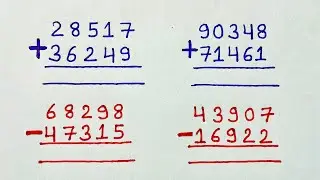 28517
+36249
90348
+71461
68298
-47315
43907
-16922